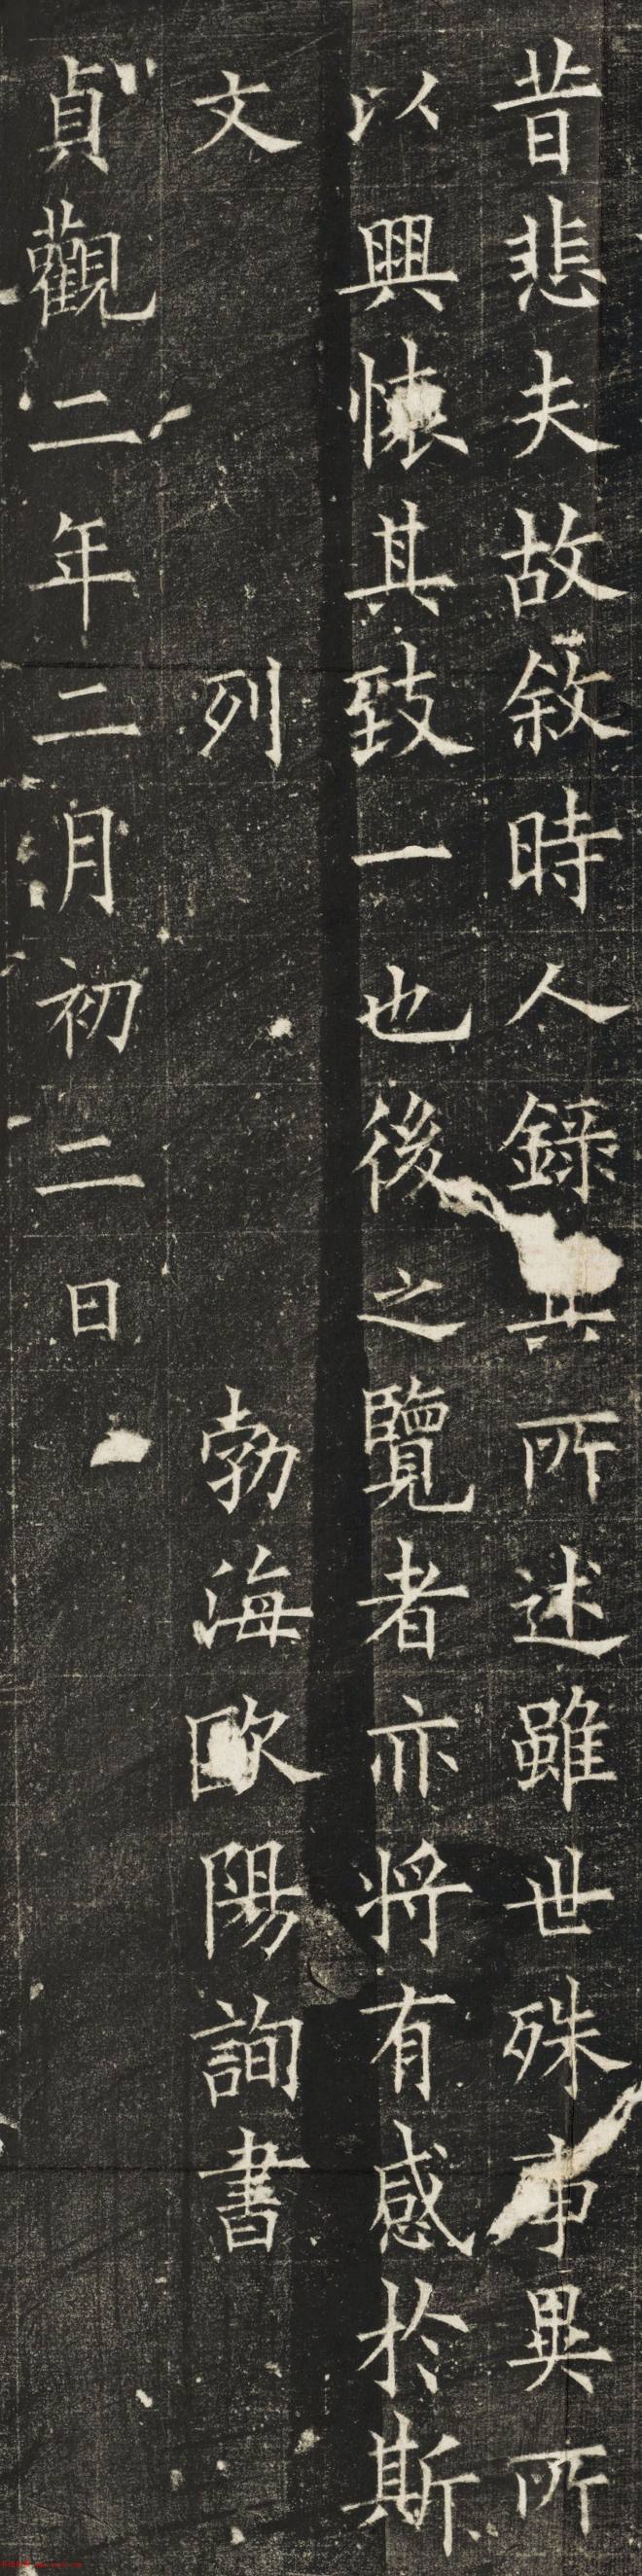 昔悲夫故敘時人錄其所述雖世殊事異所
以興懷其致一也後之覽者亦將有感於斯
文　列　勃海歐陽詢書
貞觀二年二月初二日